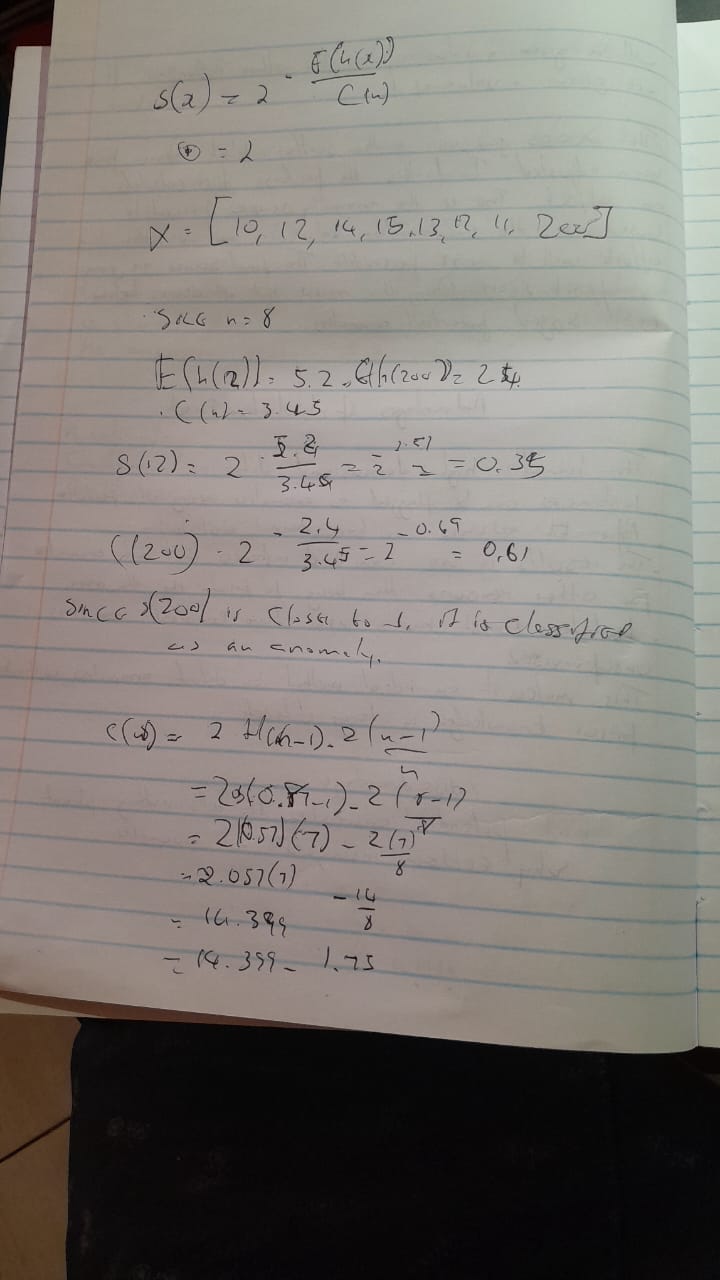 s(x) = 2 - E(h(x)) / C(n)
= 2
X = [10, 12, 14, 15, 13, 12, 11, 200]
n = 8
E(h(12)) = 5.2, h(200) = 2.4
C(n) = 3.45
S(12) = 2 - 5.2 / 3.45 = 2 - 1.51 = 0.35
(200) 2 - 2.4 / 3.45 = 2 - 0.69 = 0,61
since s(200) is close to 1, it is classified
as an anomaly.
C(8) = 2 H(n-1) - 2(n-1) / n
- 2(8-1) / 8
= 2(0.57)(7) - 2(7) / 8
= 2.057(7)
= 14.399 - 14 / 8
= 14.399 - 1.75